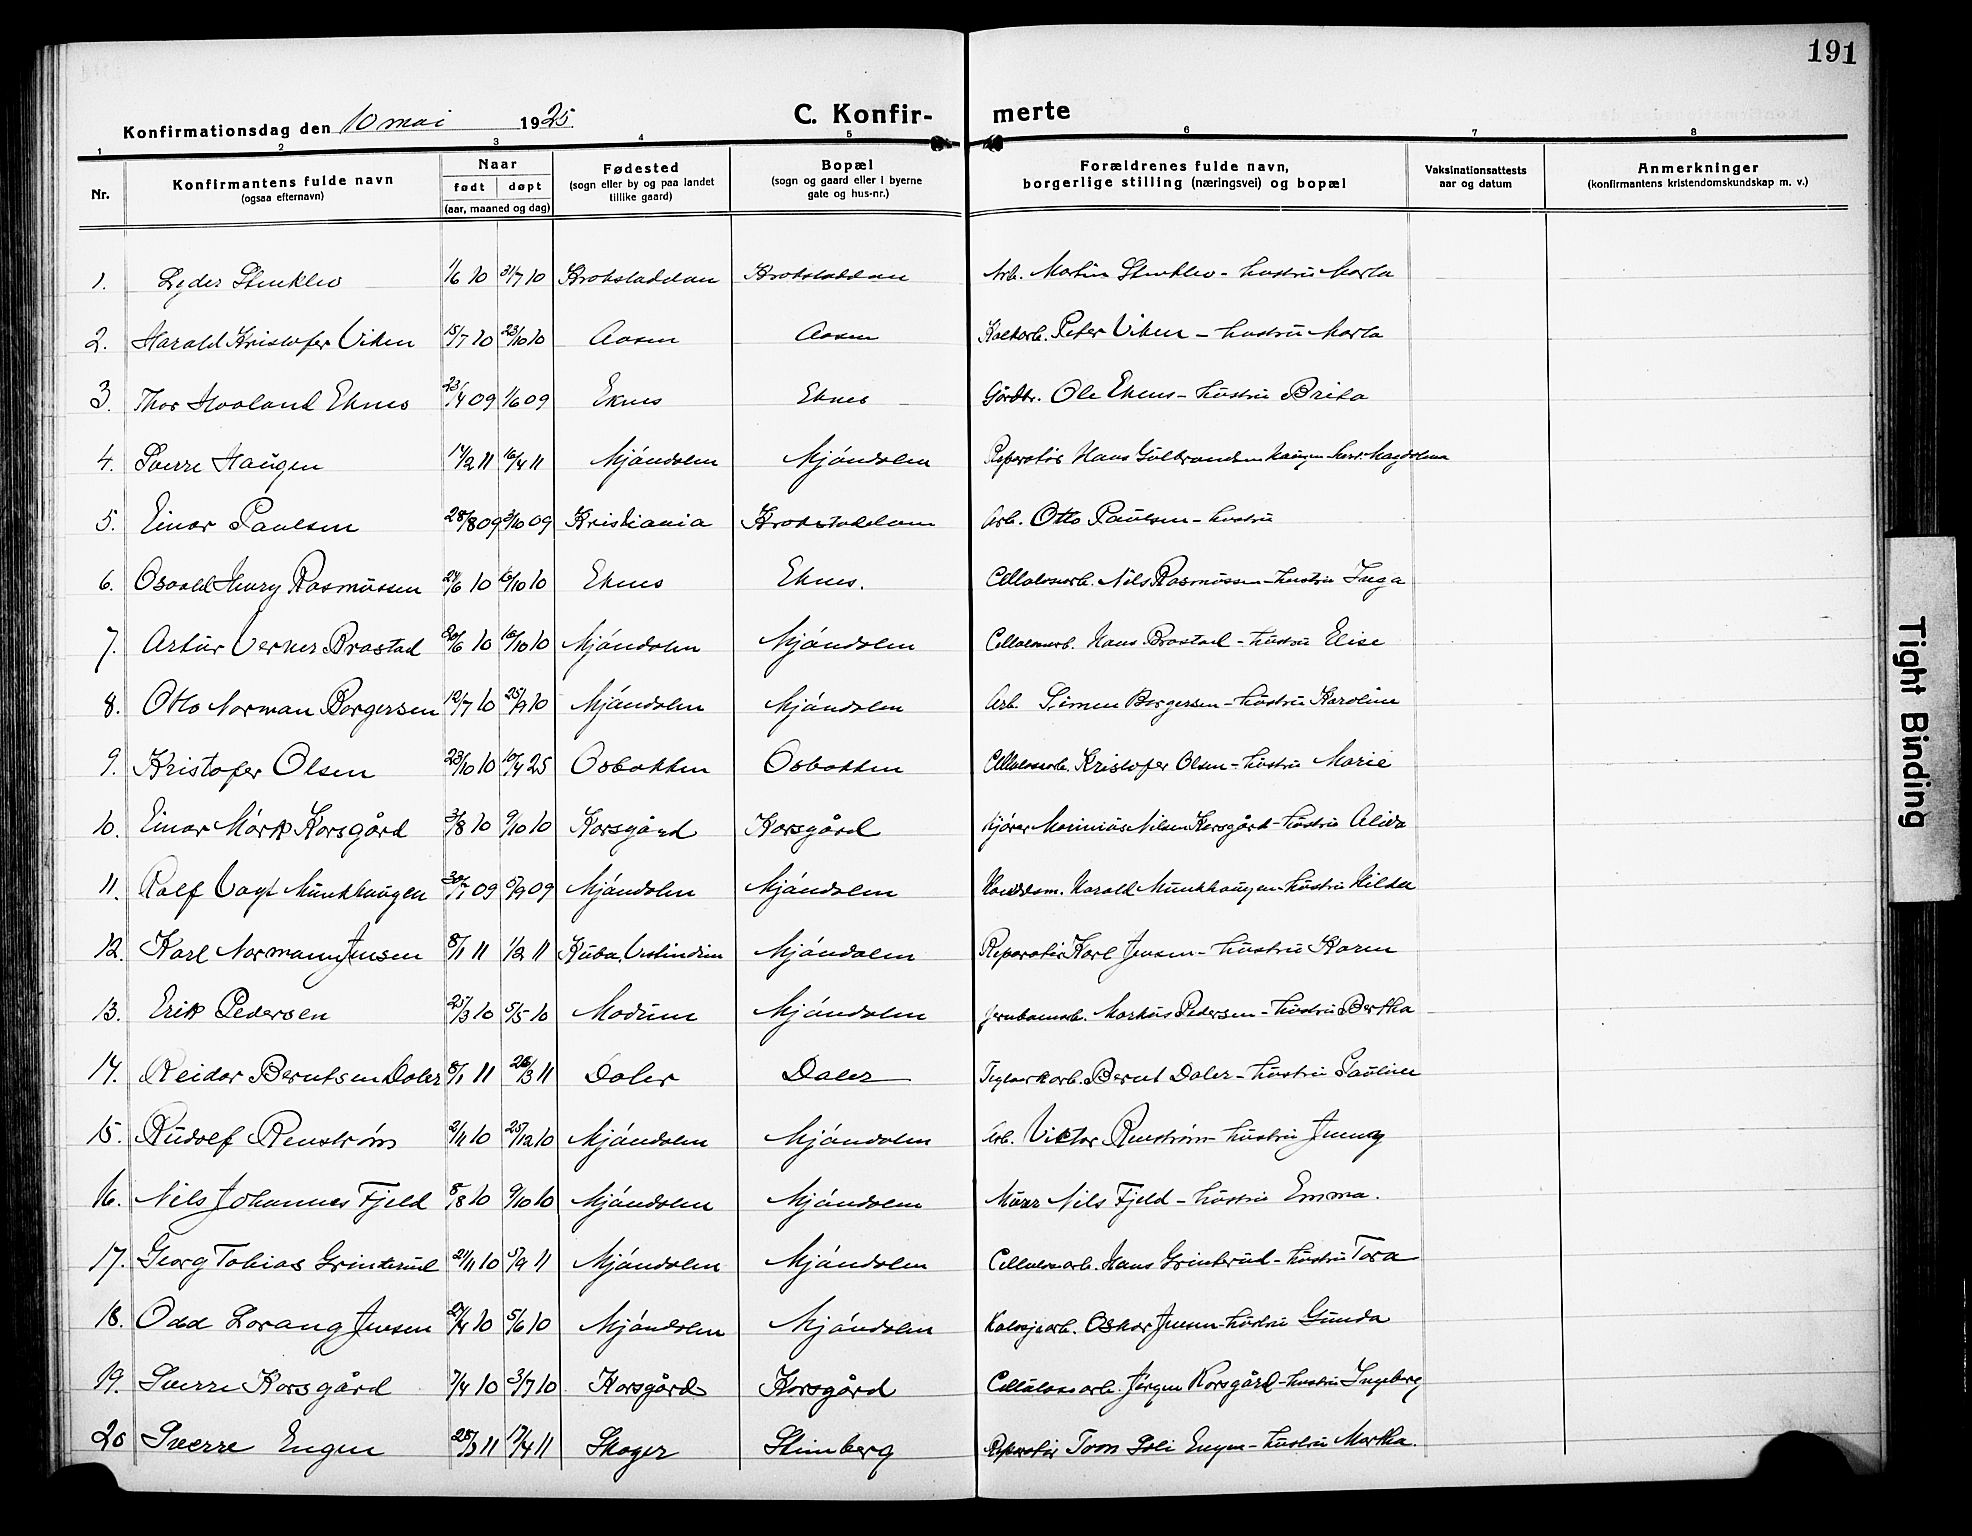 191
Konfirmationsdag den 10 mai 1925 C. Konfir- merte
1 2 3 4 5 6 7 8
Nr. Konfirmantens fulde navn (ogsaa efternavn) Naar født døpt (aar, maaned og dag) Fødested (sogn eller by og paa landet tillike gaard) Bopæl (sogn og gaard eller i byerne gate og hus-nr.) Forældrenes fulde navn, borgerlige stilling (næringsvei) og bopæl Vaksinationsattests aar og datum Anmerkninger (konfirmantens kristendomskundskap m. v.)
1. 1/6 10 31/7 10 Krokstaddan Krokstaddan Arb. hustru Marta
2. Harald Kristofer Viken 15/7 10 23/10 10 Aasen Aasen Peter Viken - hustru Marta
3. Thor Haaland Eknes 23/4 09 1/6 09 Eknes Eknes Gårdbr. Ole Eknes - hustru Brita
4. Sverre Haugen 14/2 11 16/4 11 Mjóndalen Mjóndalen Reparatör Hans Gulbrandsen Haugen hus. Magdalena
5. Einar Paulsen 28/8 09 3/10 09 Kristiania Krokstaddam Arb. Otto Paulsen - hustru
6. Osvald Henry Rasmussen 24/6 10 16/10 10 Eknes Eknes. Cellulosearb. Nils Rasmussen - hustru Inga
7. Artur Verner Brastad 20/6 10 16/10 10 Mjóndalen Mjóndalen Cellulosearb. Hans Brastad - hustru Elise
8. Otto Norman Borgersen 12/7 10 25/9 10 Mjóndalen Mjóndalen Arb. Simen Borgersen - hustru Karoline
9. Kristofer Olsen 23/10 10 10/4 25 Osbakken Osbakken Cellulosearb. Kristofer Olsen - hustru Marie
10. Einar Mórk Korsgård 3/8 10 9/10 10 Korsgård Korsgård Kjörer Marinius Nilsen Korsgård - hustru Alida
11. Rolf Vogt Munkhaugen 30/7 09 5/9 09 Mjóndalen Mjóndalen Harald Munkhaugen - hustru Hilda
12. Karl Normann Jensen 8/1 11 1/2 11 Kuba, Vestindien Mjóndalen Reparatör Karl Jensen - hustru Karen
13. Erik Pedersen 25/3 10 5/5 10 Modum Mjóndalen Jernbanearb. Markus Pedersen - hustru Bertha
14. Reidar Berntsen Daler 8/1 11 26/3 11 Daler Daler Teglverkarb. Bernt Daler - hustru Pauline
15. Rudolf Renström 2/11 10 25/12 10 Mjóndalen Mjóndalen Arb. Viktor Renström - hustru Jenny
16. Nils Johannes Fjeld 8/8 10 9/10 10 Mjóndalen Mjóndalen Murer Nils Fjeld - hustru Emma.
17. Georg Tobias Grinterud 21/11 10 5/9 11 Mjóndalen Mjóndalen Cellulosearb. Hans Grinterud - hustru Tora
18. Odd Lorang Jensen 27/4 10 5/6 10 Mjóndalen Mjóndalen Oskar Jensen - hustru Gunda
19. Sverre Korsgård 7/4 10 3/7 10 Korsgård Korsgård Cellulosearb. Jörgen Korsgård - hustru Ingeborg
20 Sverre Engen 28/3 11 17/4 11 Skoger Stenberg Reparatör Engen - hustru Martha.
Tight Binding